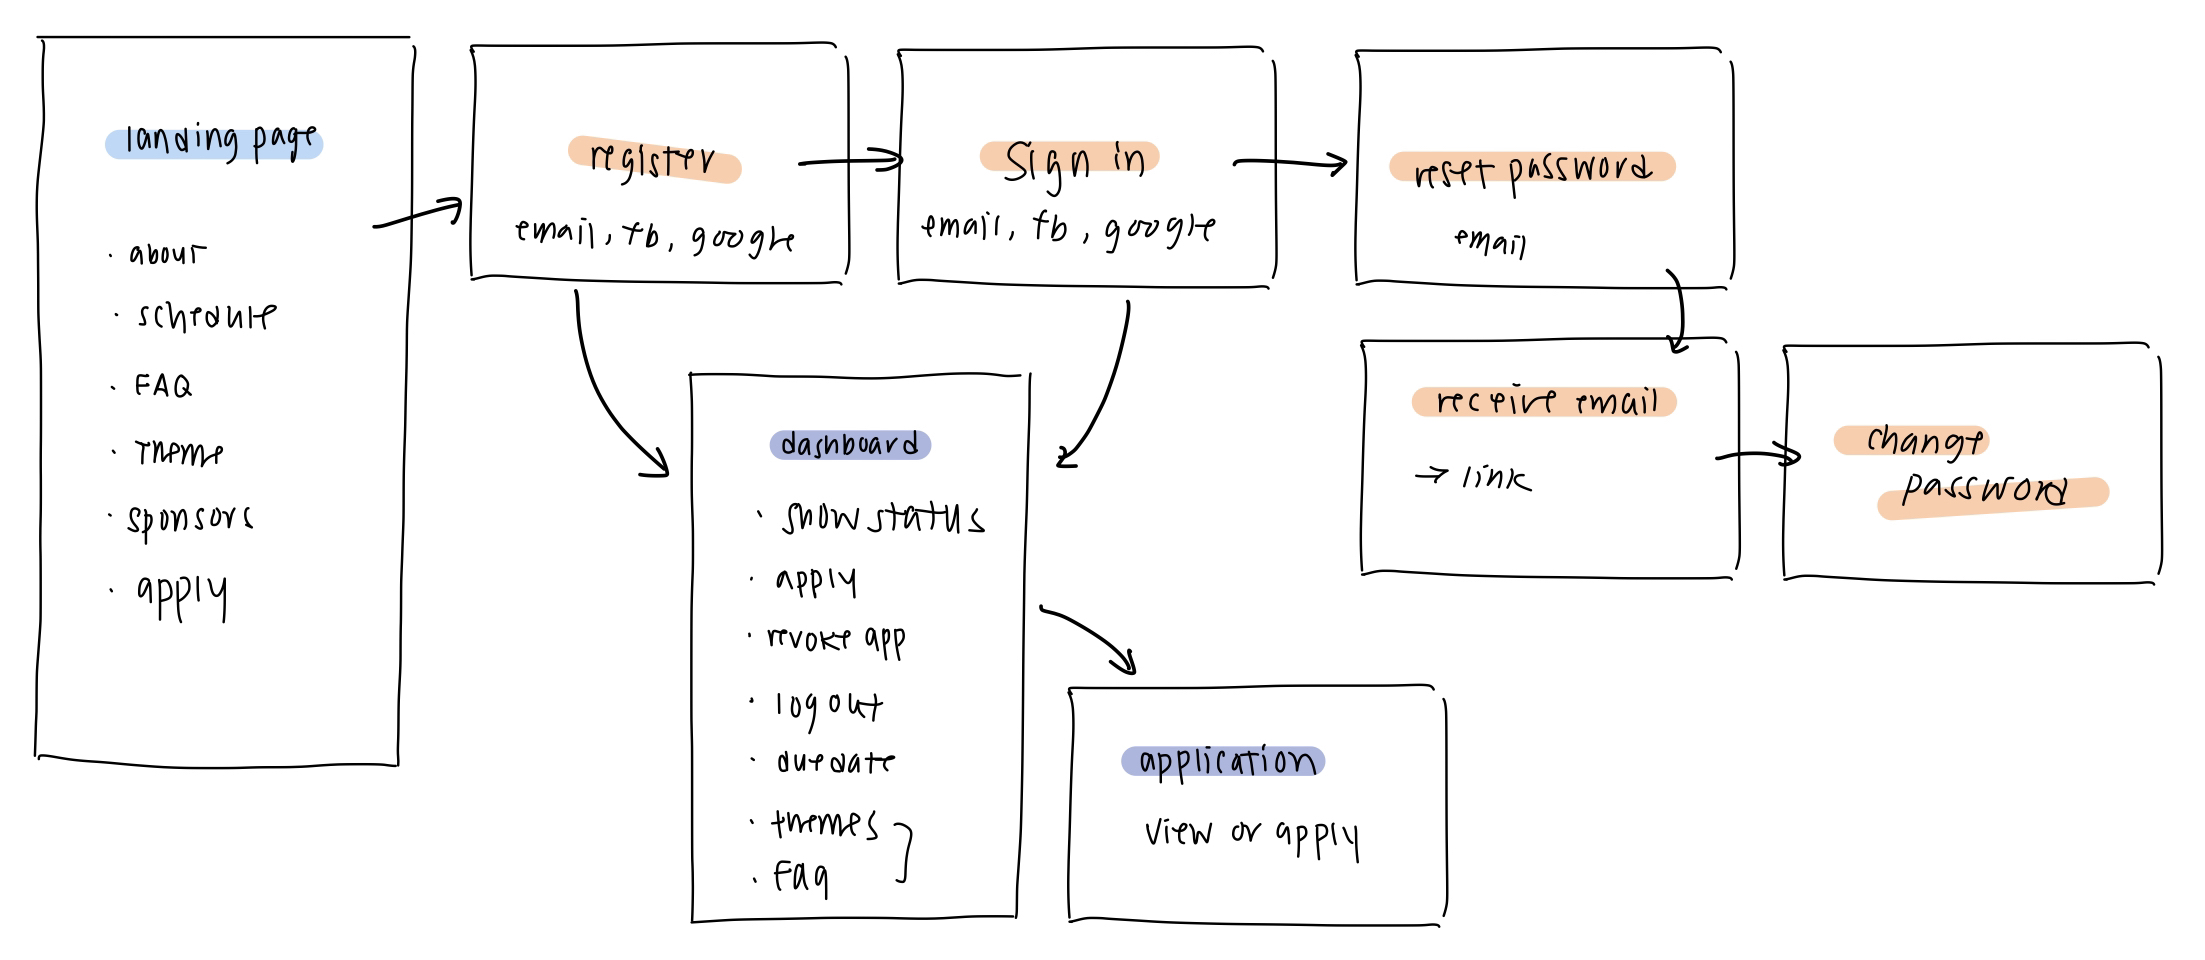 landing page
· about
· schedule
· FAQ
· Theme
· sponsors
· apply
register
email, fb, google
Sign in
email, fb, google
reset password
email
receive email
→ link
change
password
dashboard
· show status
· apply
· revoke app
· logout
· due date
· themes
· FAQ
application
view or apply